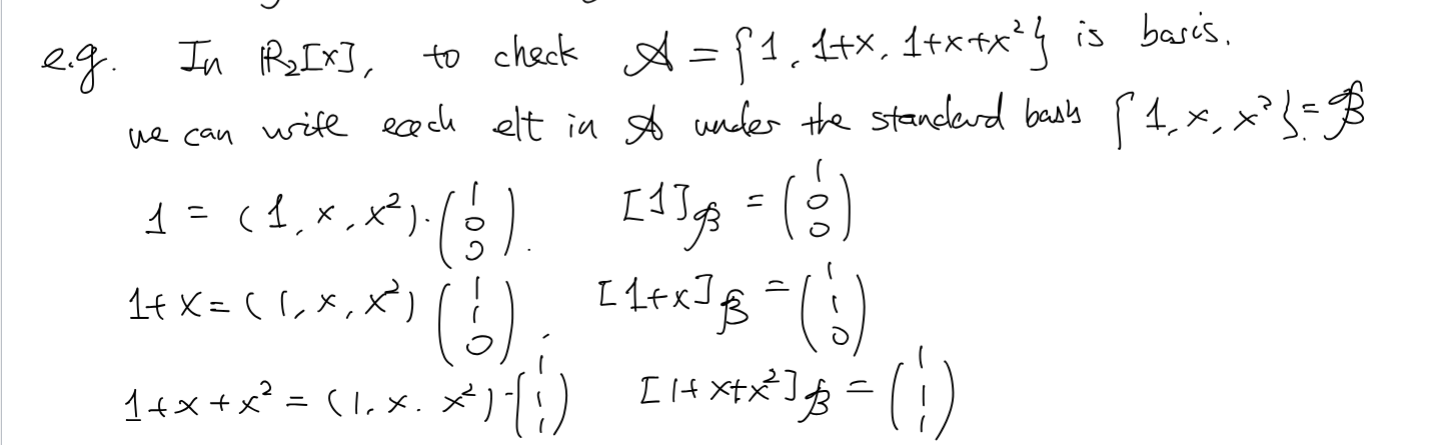 e.g. In ℝ₂[x], to check 𝒜 = {1, 1+x, 1+x+x²} is basis.
we can write each elt in 𝒜 under the standard basis {1, x, x²} = ℬ
1 = (1, x, x²)·(1 0 0). [1]ℬ = (1 0 0)
1+x = (1, x, x²) (1 1 0), [1+x]ℬ = (1 1 0)
1+x+x² = (1, x. x²)·(1 1 1) [1+x+x²]ℬ = (1 1 1)